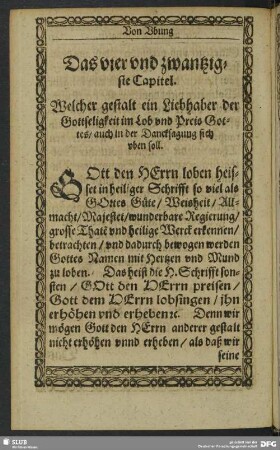 Von Vbung
Das vier vnd zwantzig-
ste Capitel.
Welcher gestalt ein Liebhaber der
Gottseligkeit im Lob vnd Preis Got-
tes/ auch in der Dancksagung sich
vben soll.
GOtt den HErrn loben heis-
set in heiliger Schrifft so viel als
GOttes Güte/ Weisheit/ All-
macht/ Majestet/ wunderbare Regierung/
grosse Thate vnd heilige Werck erkennen/
betrachten/ vnd dadurch bewogen werden
Gottes Namen mit Hertzen vnd Mund
zu loben. Das heist die H. Schrifft son-
sten/ GOtt den HErrn preisen/
Gott dem HErrn lobsingen/ jhn
erhöhen vnd erheben ꝛc. Denn wir
mögen Gott den HErrn anderer gestalt
nicht erhöhen vnnd erheben/ als daß wir
seine
SLUB
DFG